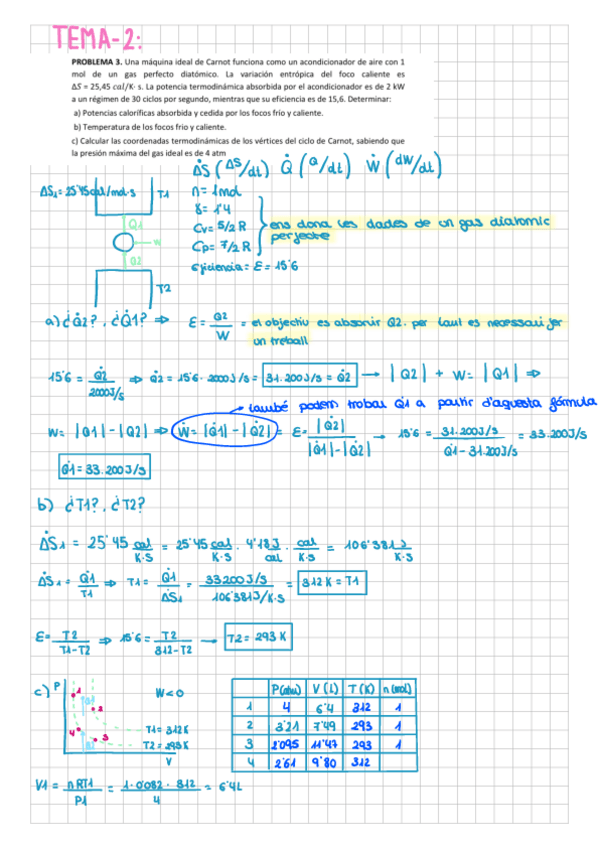 TEMA-2:
PROBLEMA 3. Una máquina ideal de Carnot funciona como un acondicionador de aire con 1
mol de un gas perfecto diatómico. La variación entrópica del foco caliente es
ΔS = 25,45 cal/K· s. La potencia termodinámica absorbida por el acondicionador es de 2 kW
a un régimen de 30 ciclos por segundo, mientras que su eficiencia es de 15,6. Determinar:
a) Potencias caloríficas absorbida y cedida por los focos frío y caliente.
b) Temperatura de los focos frío y caliente.
c) Calcular las coordenadas termodinámicas de los vértices del ciclo de Carnot, sabiendo que
la presión máxima del gas ideal es de 4 atm
ΔṠ (ΔS/dt) Q̇ (Q/dt) Ẇ (dW/dt)
ΔS1 = 25'45 cal/mol·s
T1
n = 1 mol
γ = 1'4
Cv = 5/2 R
Cp = 7/2 R
ens dona les dades de un gas diatomic
perfecte
Q1
Q2
eficiencia = E = 15'6
T2
a) ¿Q̇2?, ¿Q̇1? ⇒ E = Q2/W = el objectiu es absorvir Q2. per tant es necessari fer
un treball
15'6 = Q̇2/2000J/s ⇒ Q̇2 = 15'6 · 2000J/s = 31.200J/s = Q̇2 → |Q2| + W = |Q1| ⇒
també podem trobar Q̇1 a partir d'aquesta fórmula
W = |Q1| - |Q2| ⇒ Ẇ = |Q̇1| - |Q̇2| = E = |Q̇2|/|Q̇1| - |Q̇2| → 15'6 = 31.200J/s/Q̇1 - 31.200J/s = 33.200J/s
Q̇1 = 33.200J/s
b) ¿T1?, ¿T2?
ΔṠ1 = 25'45 cal/K·s = 25'45 cal/K·s · 4'18J/cal · cal/K·s = 106'381J/K·s
ΔṠ1 = Q̇1/T1 ⇒ T1 = Q̇1/ΔṠ1 = 33200J/s/106'381J/K·s = 312 K = T1
E = T2/T1-T2 ⇒ 15'6 = T2/312-T2 → T2 = 293 K
c) P
W<0
1
2
4
3
T1 = 312K
T2 = 293K
V
P(atm) V(L) T(K) n(mol)
1 4 6'4 312 1
2 3'21 7'49 293 1
3 2'095 11'47 293 1
4 2'61 9'80 312
V1 = nRT1/P1 = 1·0'082·312/4 = 6'4L